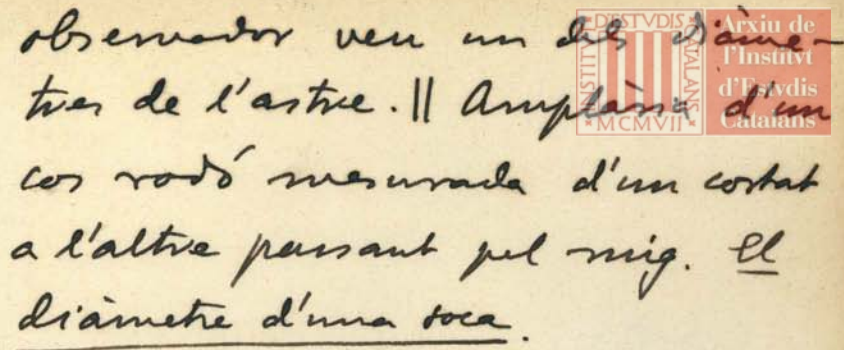 observador veu un dels diàme-
tres de l'astre. || Amplària d'un
cos rodó mesurada d'un costat
a l'altre passant pel mig. El
diàmetre d'una soca.
INSTITVT D'ESTVDIS CATALANS
MCMVII
Arxiu de
l'Institvt
d'Estvdis
Catalans